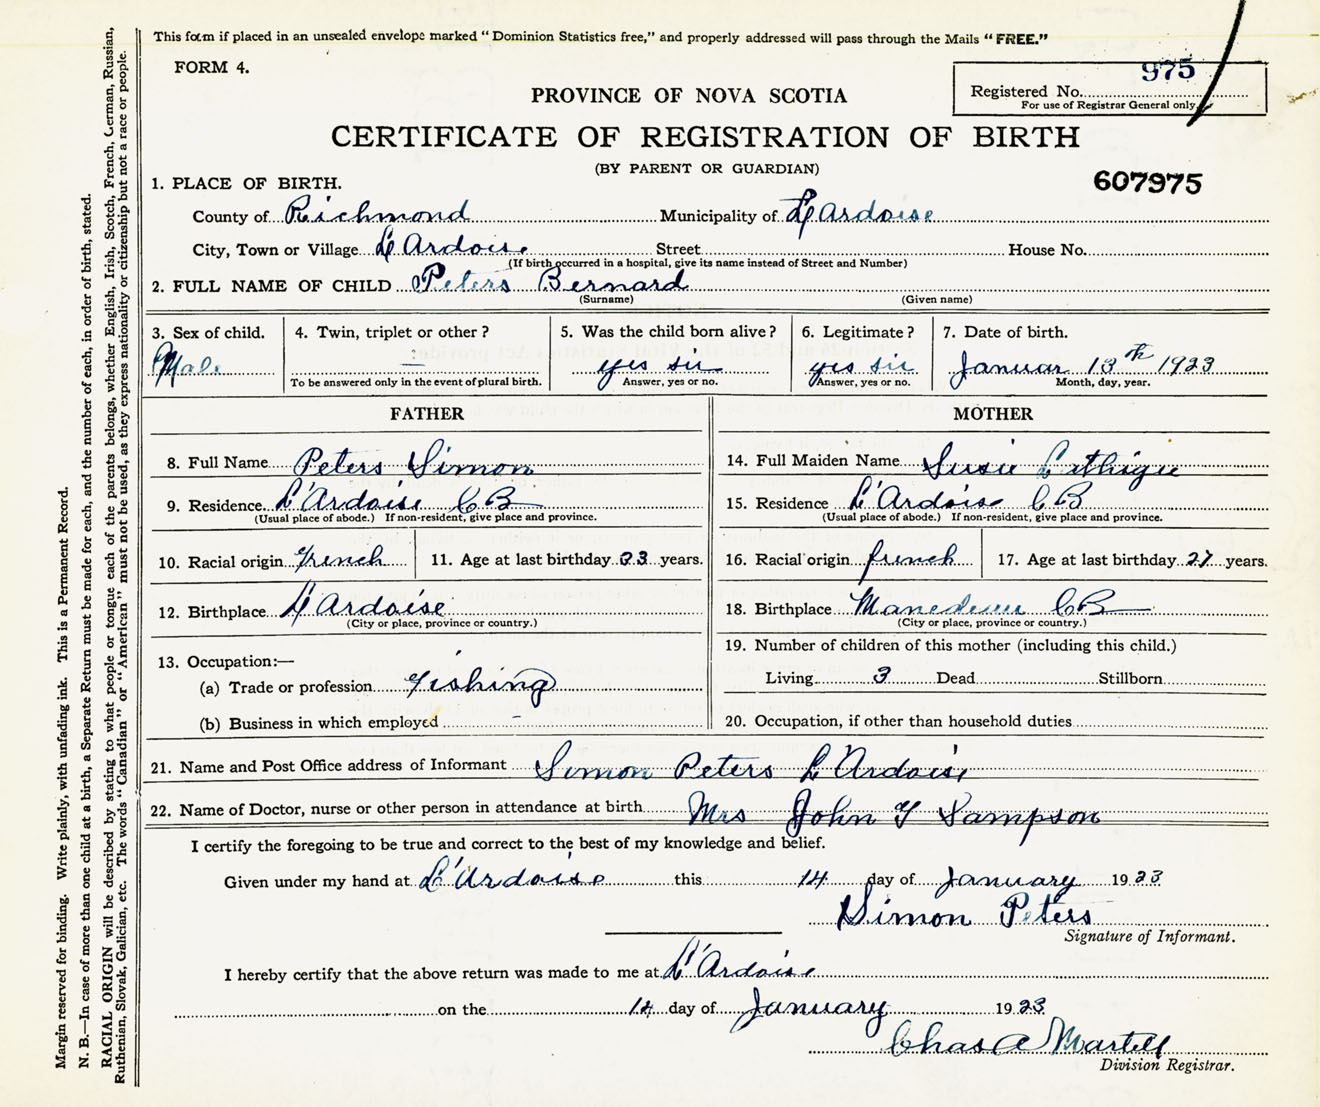 This form if placed in an unsealed envelope marked “Dominion Statistics free,” and properly addressed will pass through the Mails “FREE.”
FORM 4.
975
Registered No.
For use of Registrar General only
PROVINCE OF NOVA SCOTIA
CERTIFICATE OF REGISTRATION OF BIRTH
(BY PARENT OR GUARDIAN)
607975
1. PLACE OF BIRTH.
County of Richmond Municipality of L'Ardoise
City, Town or Village L'Ardoise Street House No.
(If birth occurred in a hospital, give its name instead of Street and Number)
2. FULL NAME OF CHILD Peters Bernard
(Surname) (Given name)
3. Sex of child. 4. Twin, triplet or other ? 5. Was the child born alive ? 6. Legitimate ? 7. Date of birth.
Male — yes sir yes sir Januar 13th 1923
To be answered only in the event of plural birth. Answer, yes or no. Answer, yes or no. Month, day, year.
FATHER MOTHER
8. Full Name Peters Simon
9. Residence L'Ardoise CB
(Usual place of abode.) If non-resident, give place and province.
10. Racial origin french 11. Age at last birthday 33 years.
12. Birthplace L'Ardoise
(City or place, province or country.)
13. Occupation:—
(a) Trade or profession Fishing
(b) Business in which employed -
14. Full Maiden Name Susie
15. Residence L'Ardoise CB
(Usual place of abode.) If non-resident, give place and province.
16. Racial origin french 17. Age at last birthday 27 years.
18. Birthplace CB
(City or place, province or country.)
19. Number of children of this mother (including this child.)
Living 3 Dead Stillborn
20. Occupation, if other than household duties
21. Name and Post Office address of Informant Simon Peters L'Ardoise
22. Name of Doctor, nurse or other person in attendance at birth Mrs John Sampson
I certify the foregoing to be true and correct to the best of my knowledge and belief.
Given under my hand at L'Ardoise this 14 day of January 1923
Simon Peters
Signature of Informant.
I hereby certify that the above return was made to me at L'Ardoise
on the 14 day of January 1923
Chas A Martell
Division Registrar.
Margin reserved for binding. Write plainly, with unfading ink. This is a Permanent Record.
N. B.—In case of more than one child at a birth, a Separate Return must be made for each, and the number of each, in order of birth, stated.
RACIAL ORIGIN will be described by stating to what people or tongue each of the parents belongs, whether English, Irish, Scotch, French, German, Russian,
Ruthenian, Slovak, Galician, etc. The words “Canadian” or “American” must not be used, as they express nationality or citizenship but not a race or people.